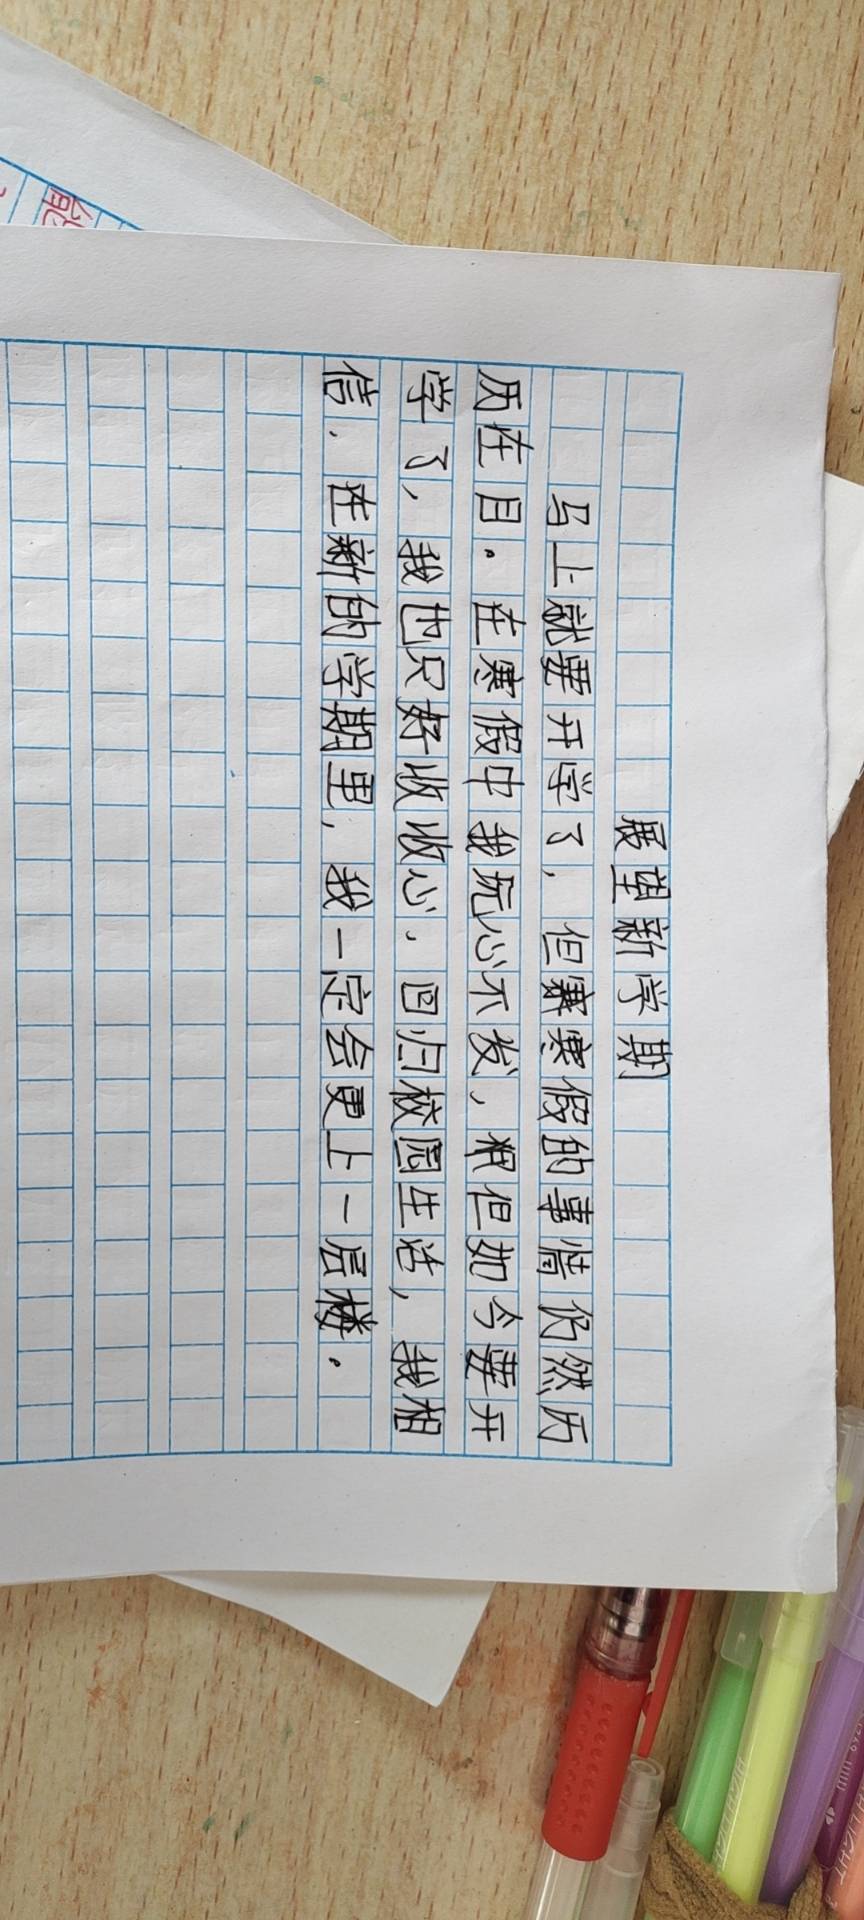 展望新学期
马上就要开学了，但寒寒假的事情仍然历
历在目。在寒假中我玩心不发，粮但如今要开
学了，我也只好收收心，回归校园生活，我相
信，在新的学期里，我一定会更上一层楼。
能